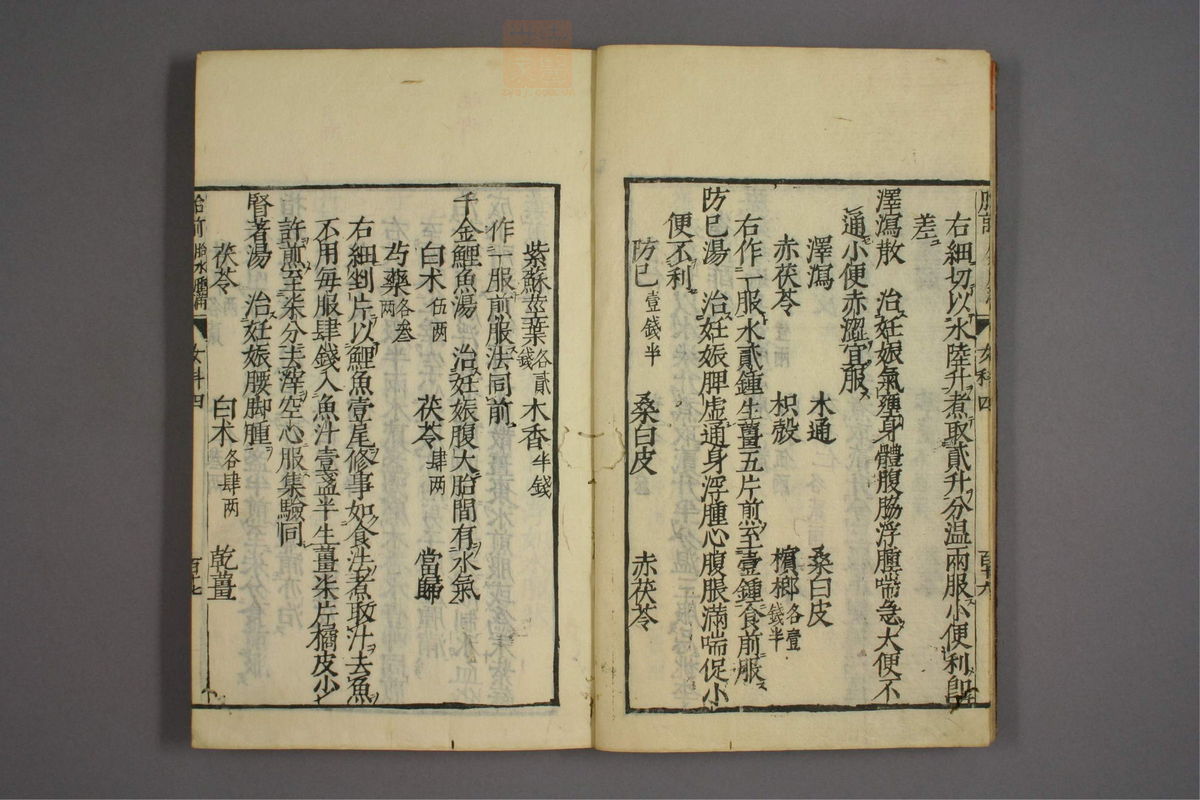 右細切以水陸升煮取貳升分温兩服小便利即
差
澤瀉散　治妊娠氣壅身體腹脇浮腫喘急大便不
通小便赤澀宜服
澤瀉　木通　桑白皮
赤茯苓　枳殻　檳榔各壹錢半
右作一服水貳鍾生薑五片煎至壹鍾食前服
防巳湯　治妊娠脾虚通身浮腫心腹脹滿喘促小
便不利
防巳壹錢半　桑白皮　赤茯苓
紫蘇莖葉各貳錢　木香半錢
作一服煎服法同前
千金鯉魚湯　治妊娠腹大胎間有水氣
白术伍兩　茯苓肆兩　當歸
芍藥各叁兩
右細剉片以鯉魚壹尾修事如食法煮取汁去魚
不用每服肆錢入魚汁壹盞半生薑柒片橘皮少
許煎至柒分去滓空心服集驗同
腎著湯　治妊娠腰脚腫
茯苓　白术各肆兩　乾薑
女科四
女科四